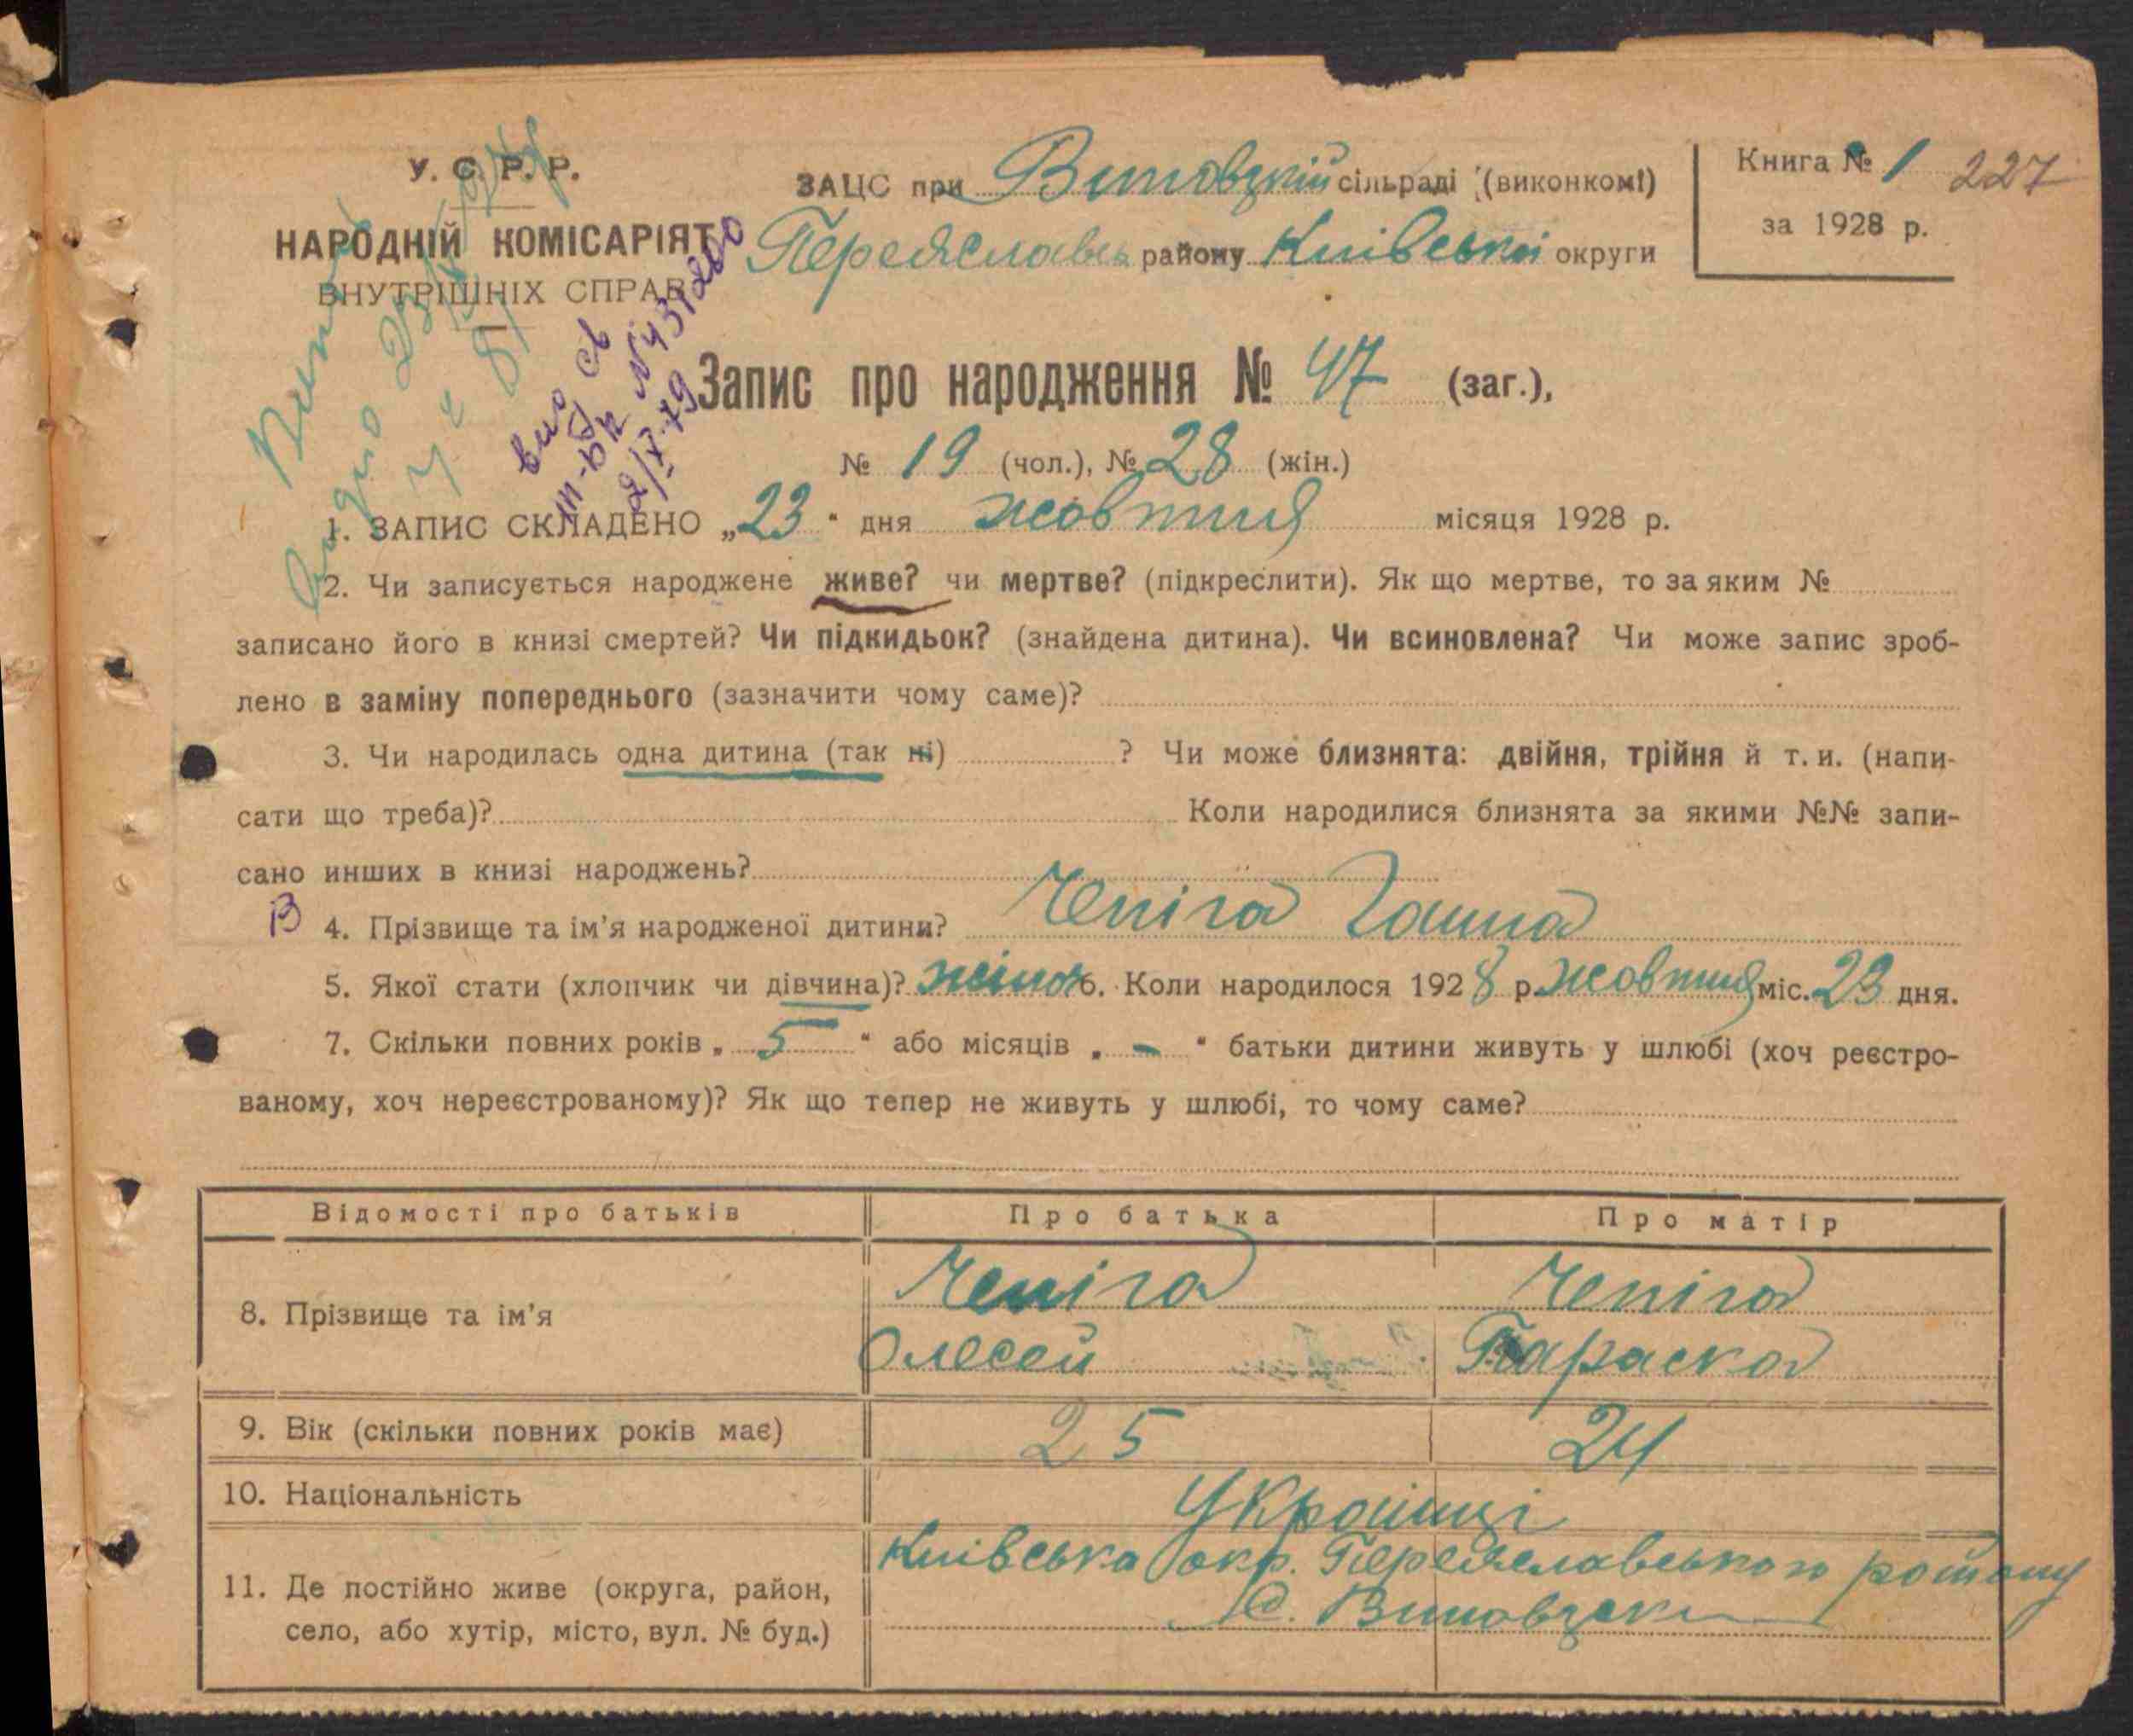 У. С. Р. Р.
НАРОДНІЙ КОМІСАРІЯТ
ВНУТРІШНІХ СПРАВ
ЗАЦС при сільраді (виконкомі)
Переяславсь району Київської округи
Книга № 1 227
за 1928 р.
Запис про народження № 47 (заг.),
№ 19 (чол.), № 28 (жін.)
1. ЗАПИС СКЛАДЕНО „23" дня жовтня місяця 1928 р.
2. Чи записується народжене живе? чи мертве? (підкреслити). Як що мертве, то за яким №
записано його в книзі смертей? Чи підкидьок? (знайдена дитина). Чи всиновлена? Чи може запис зроб-
лено в заміну попереднього (зазначити чому саме)?
3. Чи народилась одна дитина (так ні) ? Чи може близнята: двійня, трійня й т. и. (напи-
сати що треба)? Коли народилися близнята за якими №№ запи-
сано инших в книзі народжень?
В 4. Прізвище та ім'я народженої дитини? Чепіга Ганна
5. Якої стати (хлопчик чи дівчина)? жіноч 6. Коли народилося 1928 р. жовтня міс. 23 дня.
7. Скільки повних років „ 5 " або місяців „ - " батьки дитини живуть у шлюбі (хоч реєстро-
ваному, хоч нереєстрованому)? Як що тепер не живуть у шлюбі, то чому саме?
Відомості про батьків Про батька Про матір
8. Прізвище та ім'я Чепіга Чепіга
Олесей Параска
9. Вік (скільки повних років має) 25 24
10. Національність Українці
11. Де постійно живе (округа, район, село, або хутір, місто, вул. № буд.) Київська окр. Переяславського району
с.